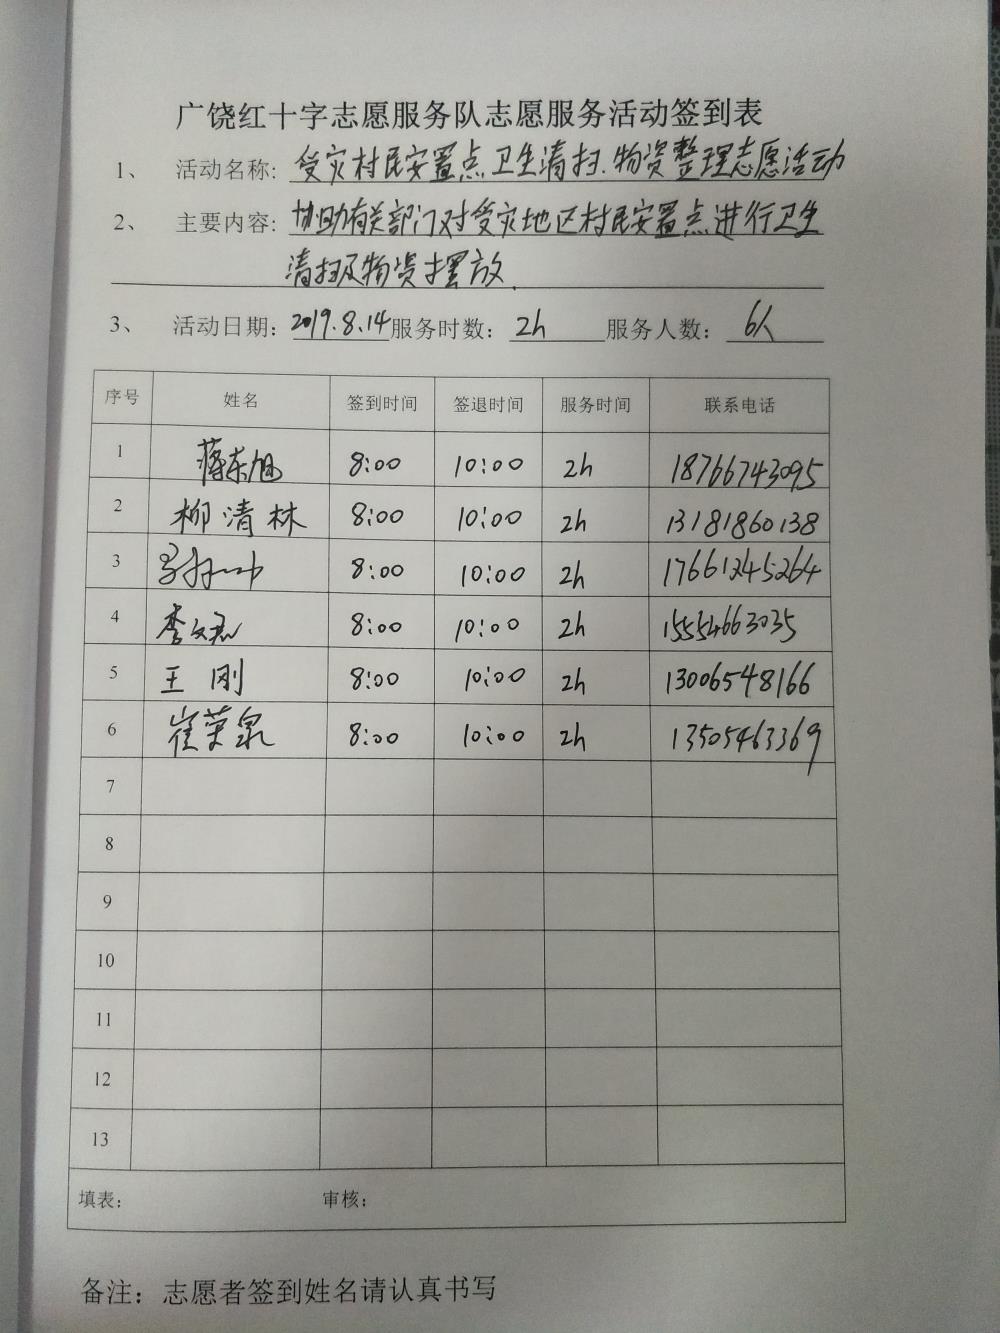 广饶红十字志愿服务队志愿服务活动签到表
1、 活动名称: 受灾村民安置点卫生清扫、物资整理志愿活动
2、 主要内容: 协助有关部门对受灾地区村民安置点进行卫生
清扫及物资摆放.
3、 活动日期: 2019.8.14 服务时数: 2h 服务人数: 6人
序号 姓名 签到时间 签退时间 服务时间 联系电话
1 蒋东旭 8:00 10:00 2h 18766743095
2 柳清林 8:00 10:00 2h 13181860138
3 8:00 10:00 2h 17661245264
4 李文君 8:00 10:00 2h 15554663035
5 王刚 8:00 10:00 2h 13006548166
6 崔荣泉 8:00 10:00 2h 13505463369
7
8
9
10
11
12
13
填表: 审核:
备注: 志愿者签到姓名请认真书写